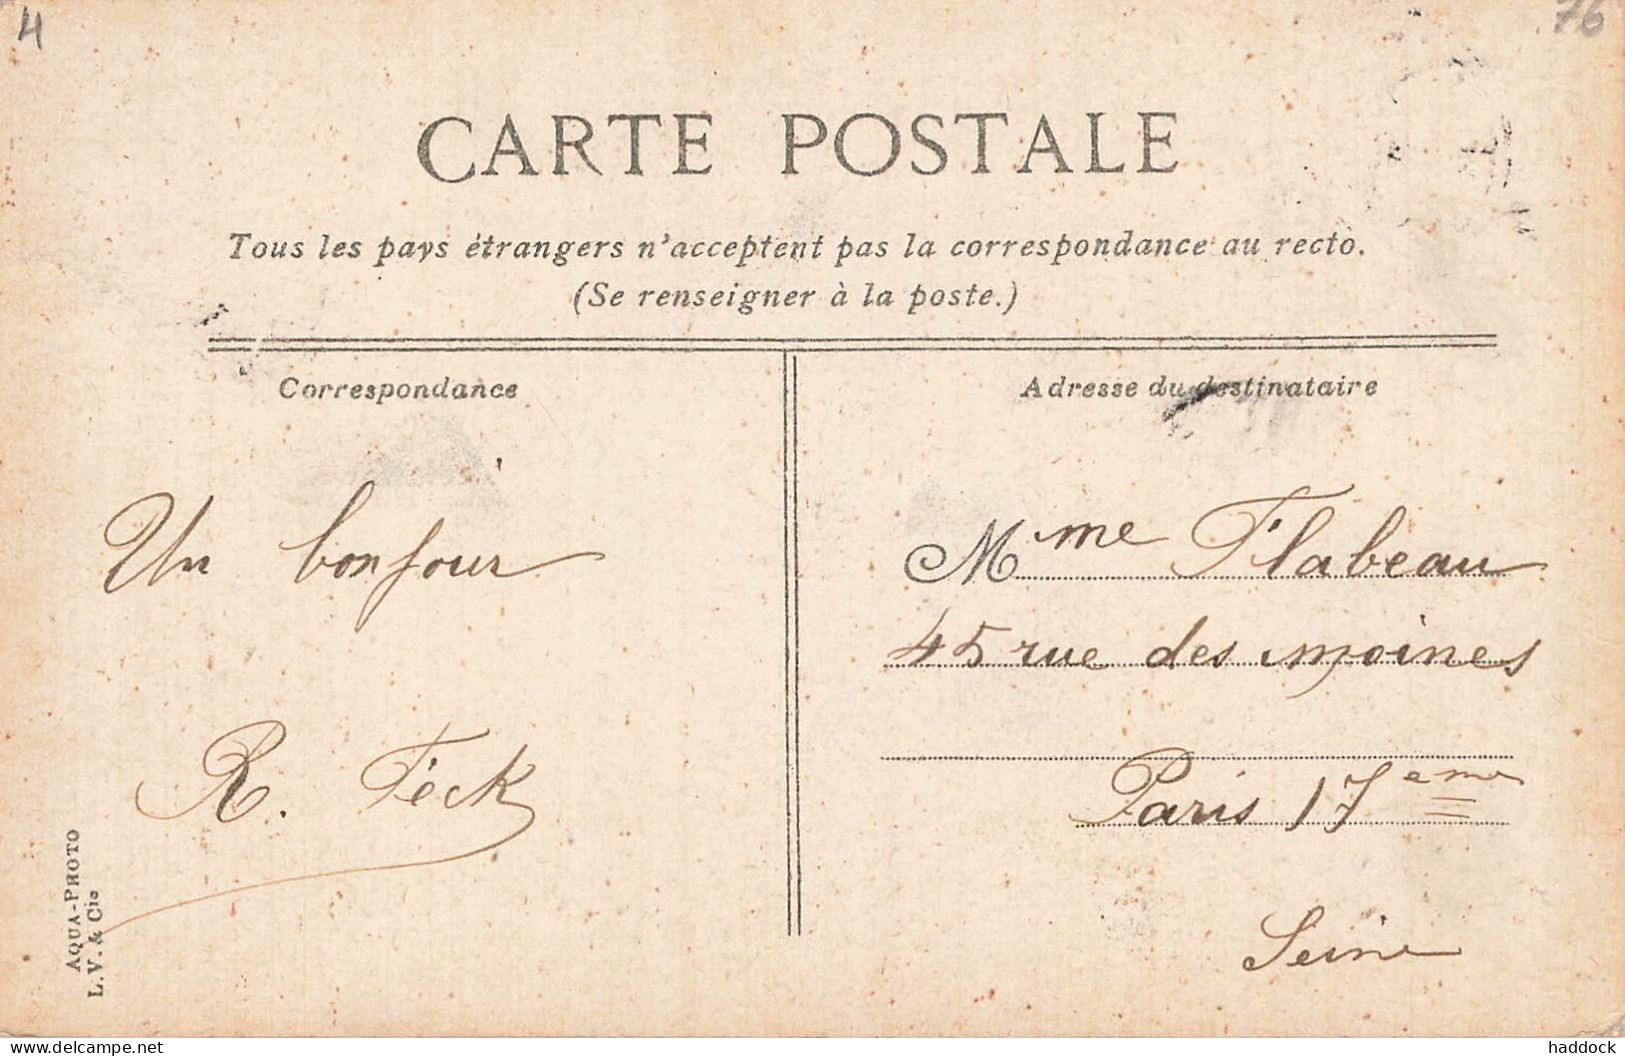 4
76
CARTE POSTALE
Tous les pays étrangers n'acceptent pas la correspondance au recto.
(Se renseigner à la poste.)
Correspondance
Un bonjour
R. Féck
AQUA-PHOTO
L.V. & Cie
Adresse du destinataire
Mme Flabeau
45 rue des moines
Paris 17eme
Seine
www.delcampe.net
haddock